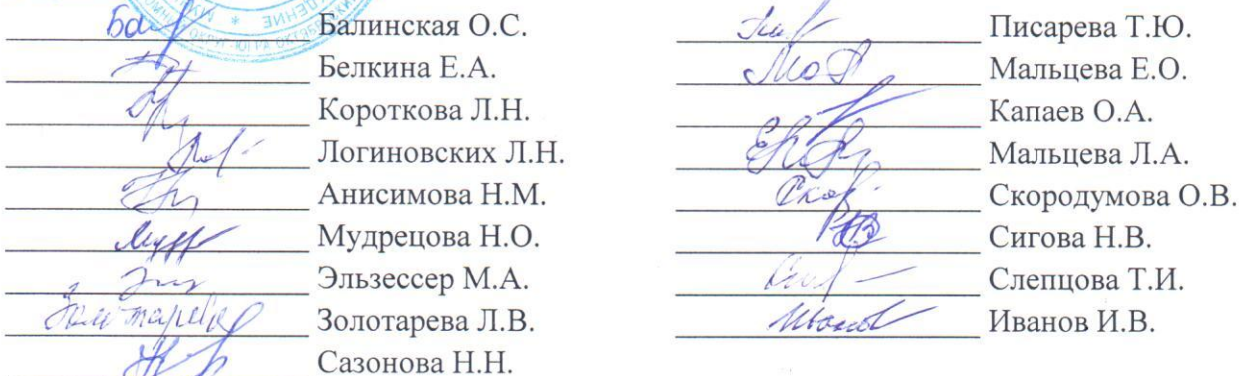 Балинская О.С.
Белкина Е.А.
Короткова Л.Н.
Логиновских Л.Н.
Анисимова Н.М.
Мудрецова Н.О.
Эльзессер М.А.
Золотарева Л.В.
Сазонова Н.Н.
Писарева Т.Ю.
Мальцева Е.О.
Капаев О.А.
Мальцева Л.А.
Скородумова О.В.
Сигова Н.В.
Слепцова Т.И.
Иванов И.В.